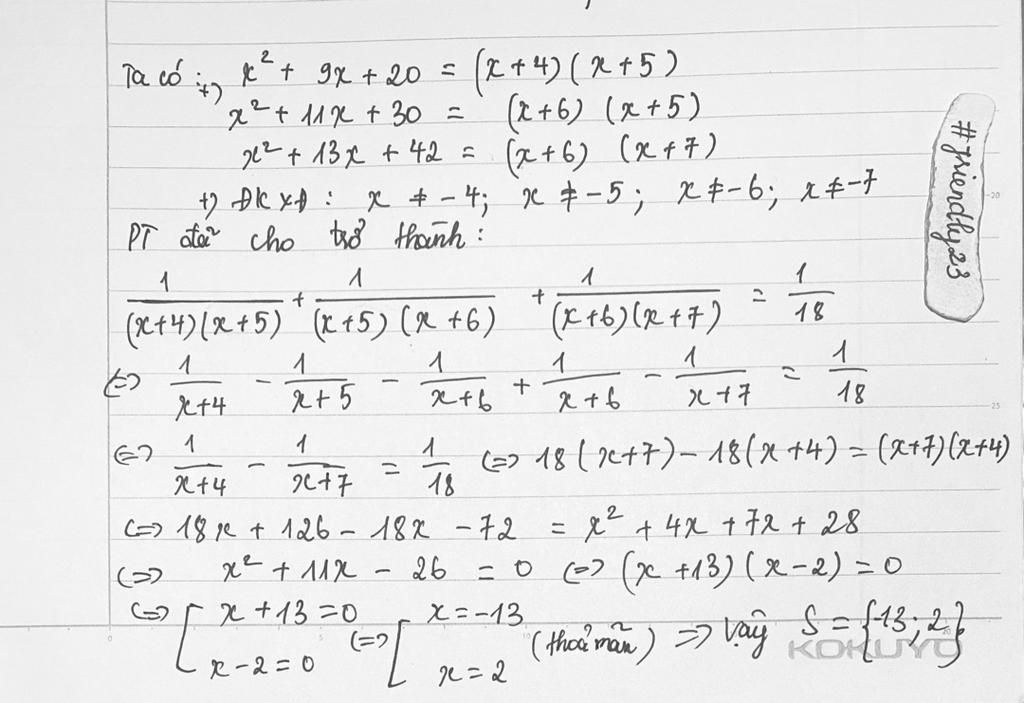 Ta có: +) x² + 9x + 20 = (x+4)(x+5)
x² + 11x + 30 = (x+6)(x+5)
x² + 13x + 42 = (x+6)(x+7)
+) ĐKXĐ: x ≠ -4; x ≠ -5; x ≠ -6; x ≠ -7
PT đã cho trở thành:
1/((x+4)(x+5)) + 1/((x+5)(x+6)) + 1/((x+6)(x+7)) = 1/18
<=> 1/(x+4) - 1/(x+5) - 1/(x+6) + 1/(x+6) - 1/(x+7) = 1/18
<=> 1/(x+4) - 1/(x+7) = 1/18 <=> 18(x+7) - 18(x+4) = (x+7)(x+4)
<=> 18x + 126 - 18x - 72 = x² + 4x + 7x + 28
<=> x² + 11x - 26 = 0 <=> (x+13)(x-2) = 0
<=> [ x + 13 = 0 <=> [ x = -13
x - 2 = 0 x = 2 (thoả mãn) => Vậy S = {-13; 2}
#friendly23
KOKUYO
20
25
0